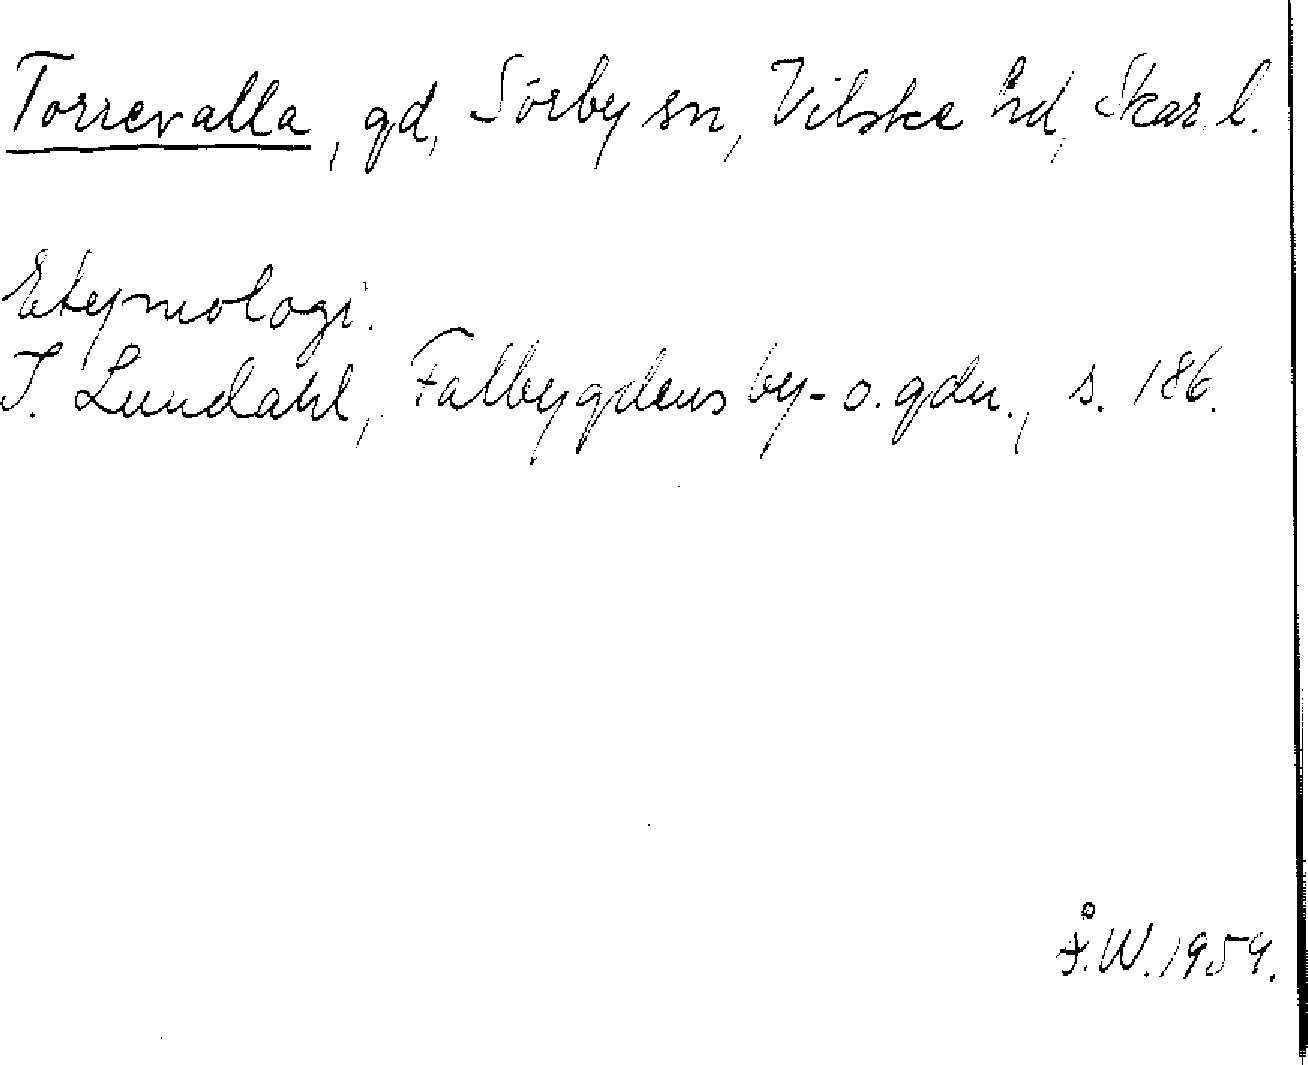 Torrevalla, gd, Sörby sn, Vilske hd, Skar. l.
Etymologi.
I. Lundahl, Falbygdens by- o. gdn., s. 186.
Å.W. 1959.